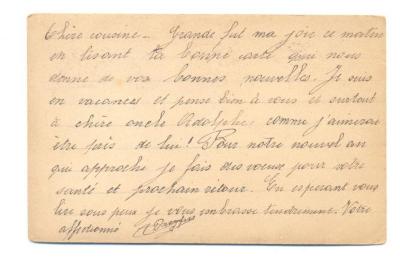 Chère cousine - Grande fut ma joie ce matin
en lisant ta bonne carte qui nous
donne de vos bonnes nouvelles. Je suis
en vacances et pense bien à vous et surtout
à chère oncle Adolphe comme j'aimerai
être près de lui! Pour notre nouvel an
qui approche je fais des voeux pour votre
santé et prochain retour. En espérant vous
lire sous peu je vous embrasse tendrement. Votre
affectionné